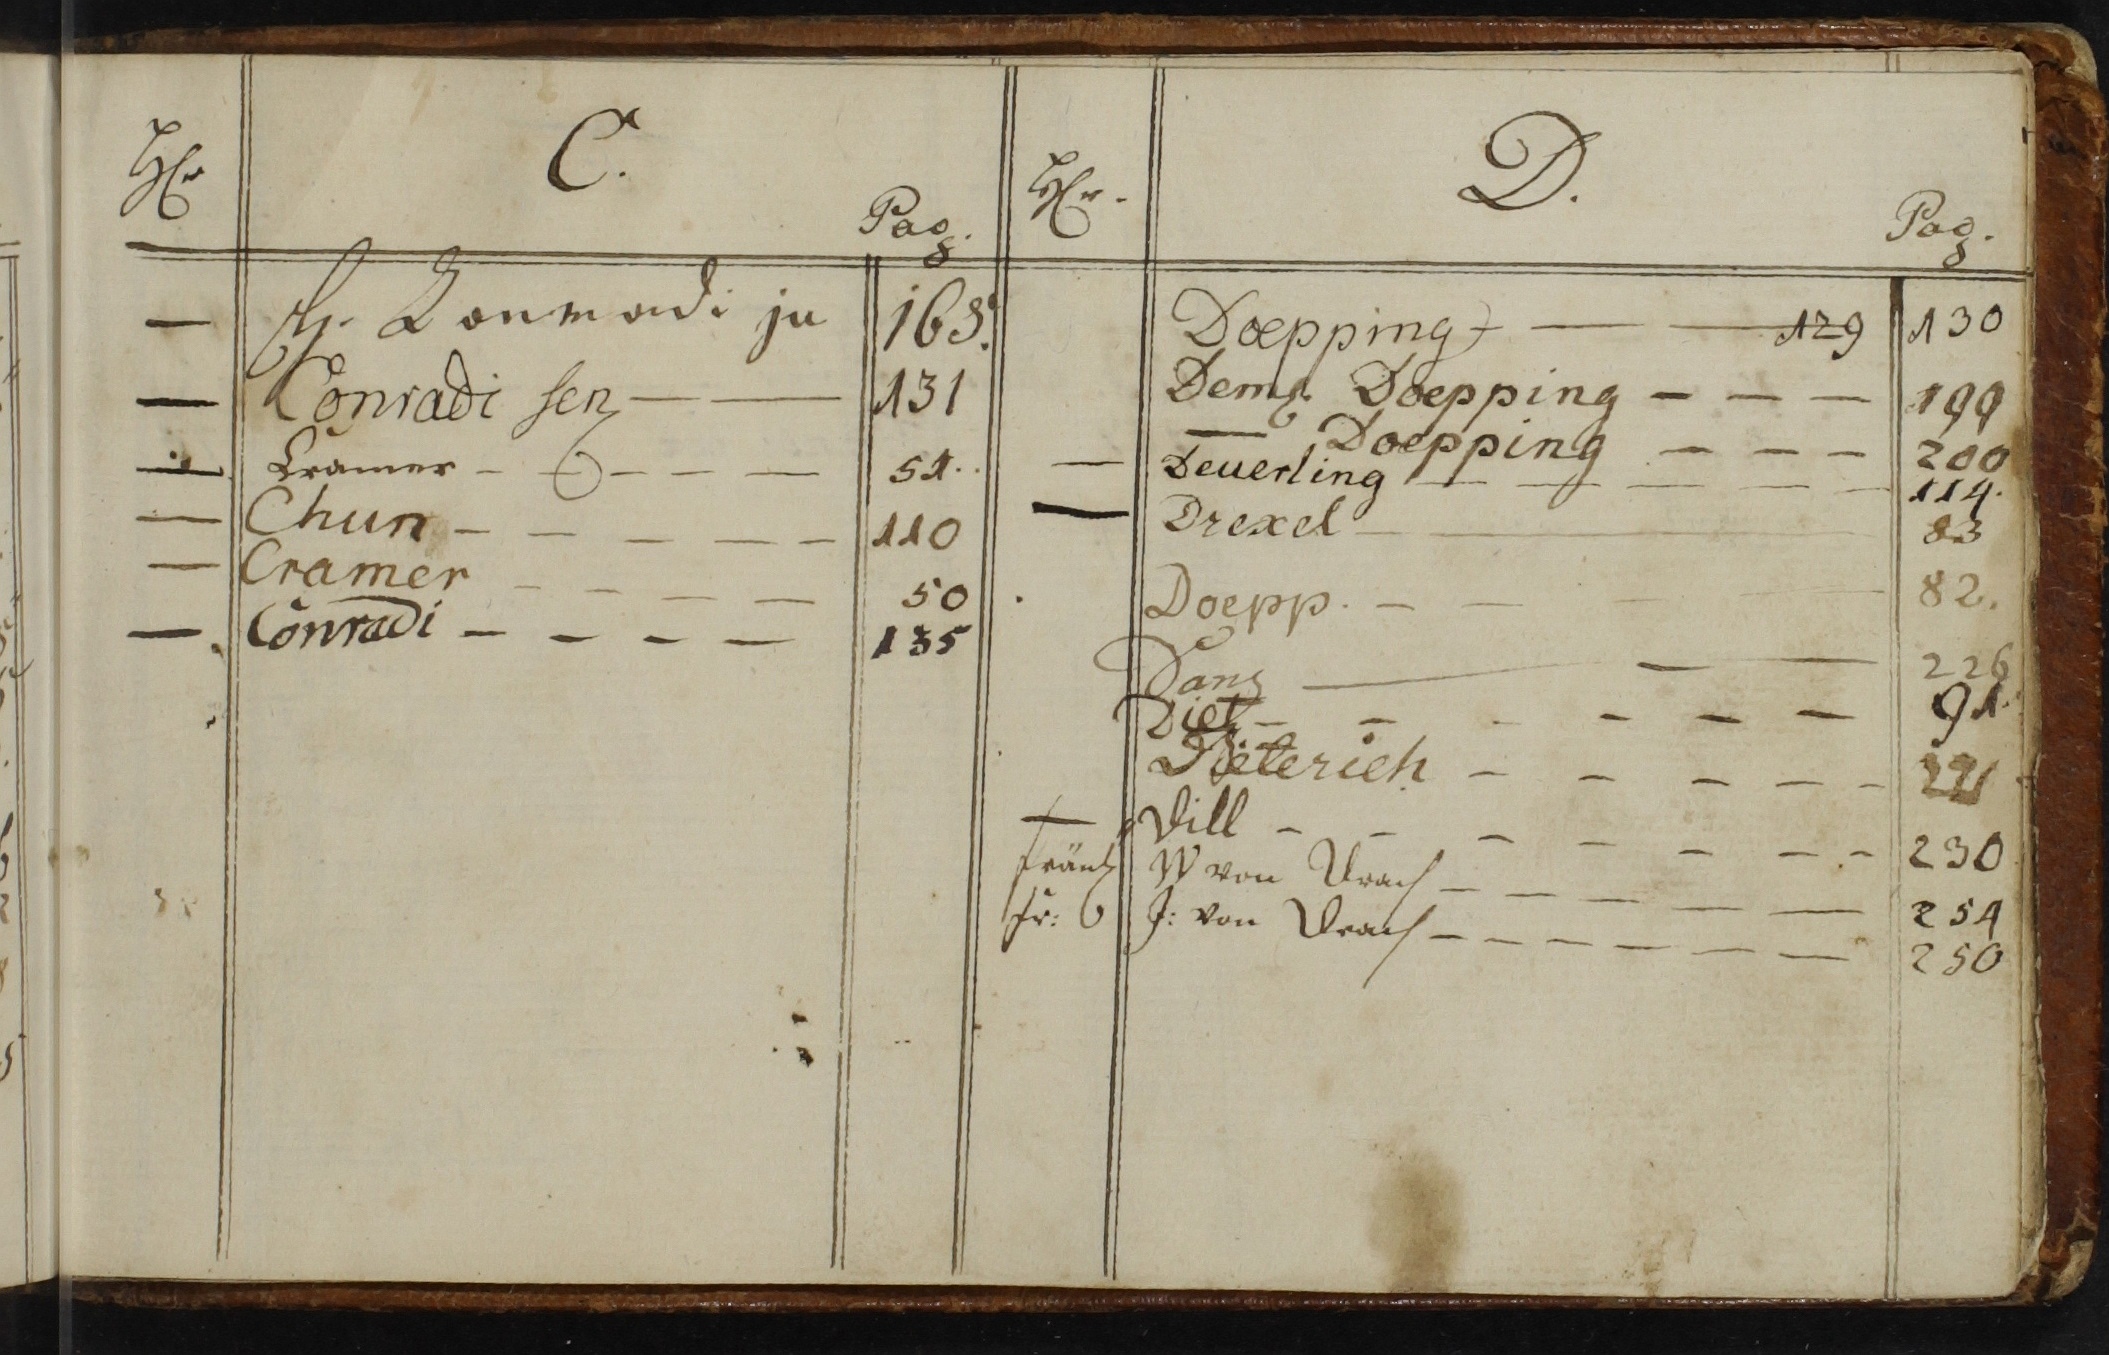 Hr C. Pag.
— H. Conradi ju 163.
— Conradi sen — — 131
— Cramer - - - - 51.
— Chun - - - - - 110
— Cramer - - - - 50
— Conradi - - - - 135
Hr. D. Pag.
Doepping — — 129 130
Dem. Doepping - - - 199
— Doepping - - - 200
— Deuerling - - - - - 114.
— Drexel — — 83
Doepp. - - - - 82.
Danz — — — 226
Dietz - - - - - - 91.
Dieterich - - - - -
— Dill - - - - - - - 230
Fräul W von Drach - - - - - - 254
Fr: J: von Drach - - - - - - - 250